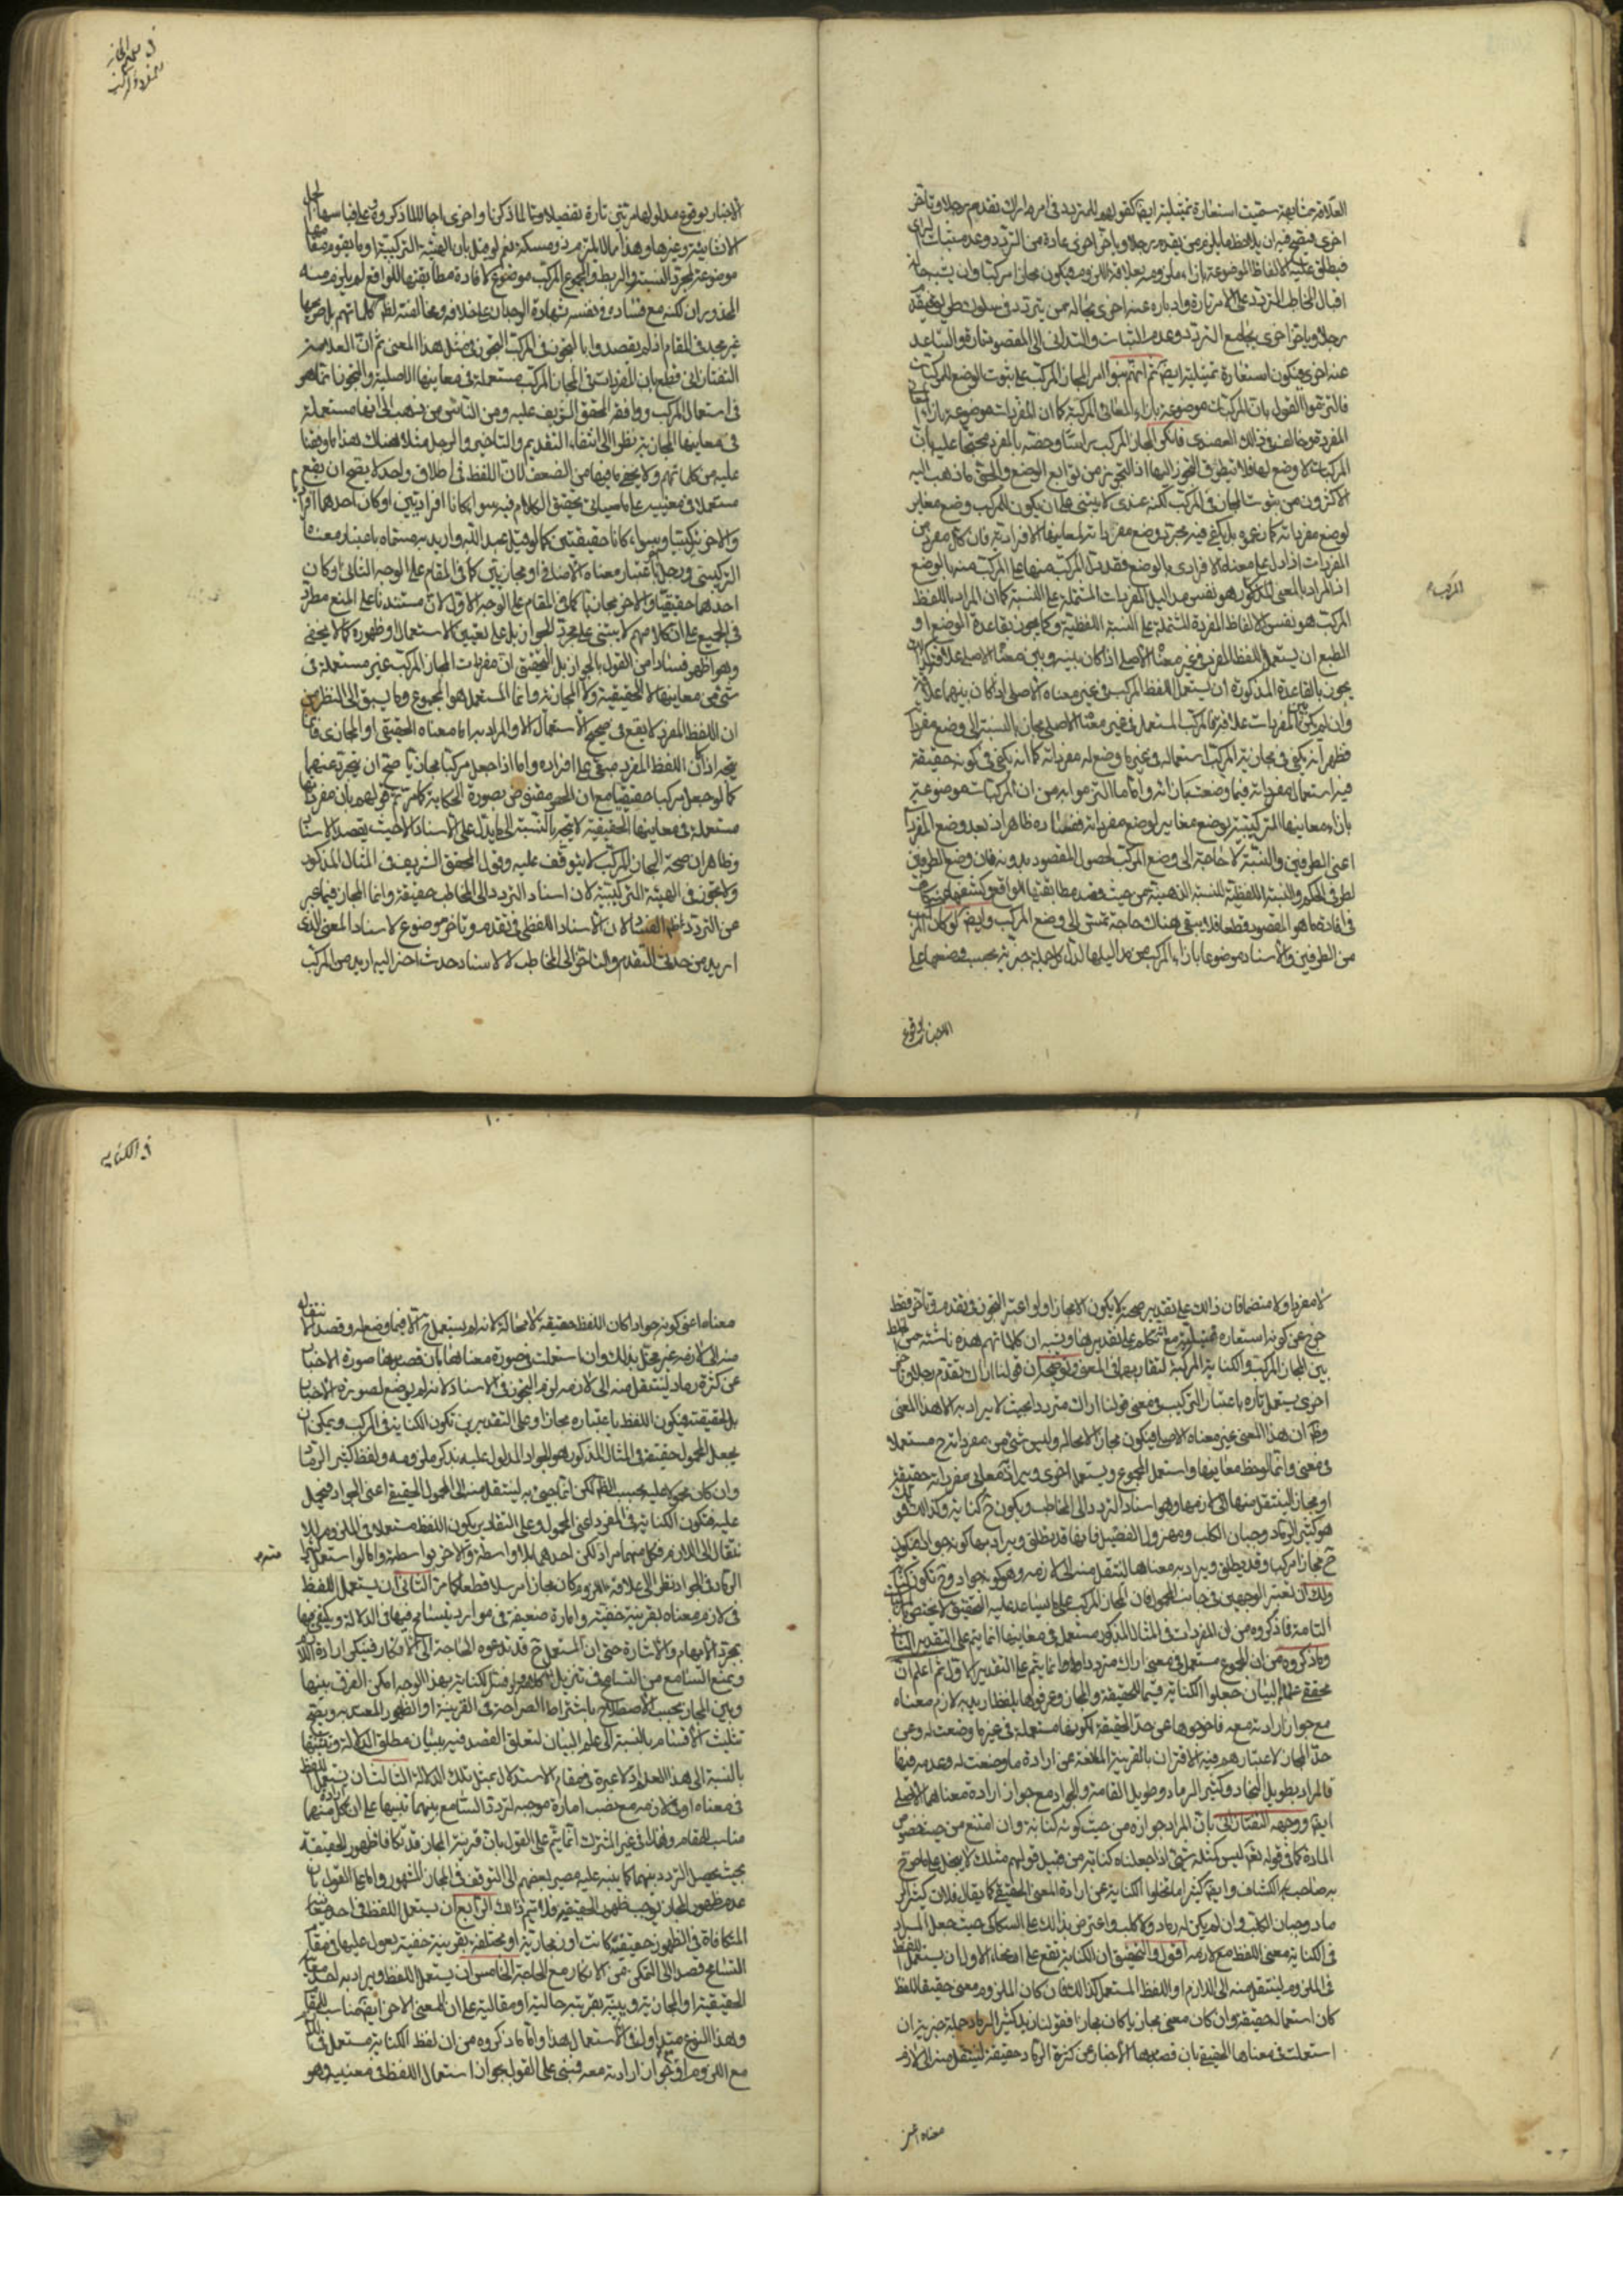 العلاقة مشابهة سميت استعارة تمثيلية ايضا كقولهم للمتردد في امر اراك تقدم رجلا وتاخر
اخرى فيصح فيه ان يلاحظ ما يلزم من يقدم رجلا ويؤخر اخرى عادة من التردد وعدم ثبات الراي
فيطلق عليه الالفاظ الموضوعة بازاء ملزومه بعلاقة اللزوم فيكون مجازا مركبا وان يشبه حالة
اقبال المخاطب المتردد على الامر تارة وادباره عنه اخرى بحالة من يتردد في سلوك طريق فيقدم
رجلا ويؤخر اخرى بجامع التردد وعدم الثبات والتداني الى المقصود تارة والتباعد
عنه اخرى فيكون استعارة تمثيلية ايضا ثم انهم بنوا امر المجاز المركب على ثبوت الوضع للمركبات
فالتزموا القول بان المركبات موضوعة بازاء المعاني المركبة كما ان المفردات موضوعة بازاء المعاني
المفردة وخالف في ذلك العضدي فانكر المجاز المركب راسا وخصه بالمفرد محتجا عليه بان
المركبات لا وضع لها فلا يتطرق التجوز اليها اذ التجوز من توابع الوضع والحق ما ذهب اليه
الاكثرون من ثبوت المجاز في المركب لكنه عندي لا يبتني على ان يكون للمركب وضع مغاير
لوضع مفرداته كما زعموه بل يكفي فيه مجرد وضع مفرداته لمعانيها الافرادية فان كل مفرد من
المفردات اذا دل على معناه الافرادي بالوضع فقد دل المركب منها على المركب منها بالوضع
اذ المراد بالمعنى المذكور هو نفس مداليل المفردات المشتملة على النسبة كما ان المراد باللفظ
المركب هو نفس الالفاظ المفردة المشتملة على النسبة اللفظية وكما يجوز بقاعدة الوضع او
الطبع ان يستعمل اللفظ المفرد في غير معناه الاصلي اذا كان بينه وبين معناه الاصلي علاقة كذلك
يجوز بالقاعدة المذكورة ان يستعمل اللفظ المركب في غير معناه الاصلي اذا كان بينهما علاقة
وان لم يكن بين المفردات علاقة فالمركب المستعمل في غير معناه الاصلي مجاز بالنسبة الى وضع مفرداته
فظهر انه يكفي في مجازية المركب استعماله في غير ما وضع له مفرداته كما انه يكفي في كونه حقيقة
فيه استعمال مفرداته فيما وضعت بازائه واما ما التزموا به من ان المركبات موضوعة
بازاء معانيها التركيبية بوضع مغاير لوضع مفرداته ففساده ظاهر اذ بعد وضع المفردات
اعني الطرفين والنسبة لا حاجة الى وضع المركب لحصول المقصود بدونه فان وضع الطرفين
لطرفي الحكم والنسبة اللفظية للنسبة الذهنية من حيث قصد مطابقتها للواقع وكشفها عنه كاف
في افادة ما هو المقصود قطعا فلا يبقى هناك حاجة تمس الى وضع المركب وايضا لو كان المركب
من الطرفين والاسناد موضوعا بازاء المركب من مداليلها لدل كل جملة خبرية بحسب وضعها على
الاخبار بوقوع
المركب م
في تعميم المجاز
للمفرد والمركب
الاخبار بوقوع مدلولها مرتين تارة تفصيلا وتا لما ذكرنا واخرى اجمالا لما ذكروه وعلى قياسها الجمل
الانشائية وغيرها وهذا مما لا يلتزم به ذو مسكة نعم لو قيل بان الهيئة التركيبية او ما يقوم مقامها
موضوعة لمجرد النسبة والربط والمجموع المركب موضوع لافادة مطابقتها للواقع لم يلزم منه
المحذوران لكنه مع فساده في نفسه بشهادة الوجدان على خلافه ومخالفته لظاهر كلماتهم بل صريحها
غير مجد في المقام اذ لم يقصدوا بالتجوز في المركب التجوز في مثل هذا المعنى ثم ان العلامة
التفتازاني قطع بان المفردات في المجاز المركب مستعملة في معانيها الاصلية والتجوز انما هو
في استعمال المركب ووافقه المحقق الشريف عليه ومن الناس من ذهب الى انها مستعملة
في معانيها المجازية نظرا الى انتفاء التقديم والتاخير والرجل مثلا هناك هذا ما وقفنا
عليه من كلماتهم ولا يخفى ما فيها من الضعف لان اللفظ في اطلاق واحد لا يصح ان يقع
مستعملا في معنيين على ما سياتي تحقيق الكلام فيه سواء كانا افراديين او كان احدهما افراديا
والاخر تركيبيا وسواء كانا حقيقتين كما لو قيل عبد الله واريد به مسماه باعتبار معناه
التركيبي ورجل باعتبار معناه الاصلي او مجازيين كما في المقام على الوجه الثاني او كان
احدهما حقيقيا والاخر مجازيا كما في المقام على الوجه الاول لان مستندنا على المنع مطرد
في الجميع على ان كلامهم لا يبتني على مجرد الجواز بل على تعيين الاستعمال وظهوره كما لا يخفى
وهو اظهر فسادا من القول بالجواز بل التحقيق ان مفردات المجاز المركب غير مستعملة في
شيء من معانيها لا الحقيقية ولا المجازية وانما المستعمل هو المجموع وما يسبق الى النظر من
ان اللفظ المفرد لا يقع في صحيح الاستعمال الا والمراد به اما معناه الحقيقي او المجازي فانما
يتجه اذا كان اللفظ المفرد مبقى على افراده واما اذا جعل مركبا مجازيا صح ان يتجرد عنهما
كما لو جعل مركبا حقيقيا مع ان الحصر منقوض بصورة الحكاية كما مر ثم قولهم بان مفرداتها
مستعملة في معانيها الحقيقية لا يتجه بالنسبة الى ما يدل على الاسناد الا حيث يقصد الاسناد
وظاهر ان صحة المجاز المركب لا يتوقف عليه وقول المحقق الشريف في المثال المذكور
ولا تجوز في الهيئة التركيبية لان اسناد التردد الى المخاطب حقيقة وانما المجاز فيما عبر
عن التردد ظاهر الفساد لان الاسناد اللفظي في تقدم وتاخر موضوع لاسناد المعنى الذي
اريد من حدثي التقدم والتاخر الى المخاطب لا لاسناد حدث اخر اليه اريد من المركب
لا مفردا ولا متضما فان ذلك على تقدير صحته لا يكون الا مجازا ولو اعتبر التجوز في تقدم وتاخر فقط
خرج عن كونه استعارة تمثيلية مع انه تكلم على تقديرها ويشبه ان كلماتهم هذه ناشئة من الخلط
بين المجاز المركب والكناية المركبة لتقاربهما في المعنى وتوضيحه ان قولنا اراك تقدم رجلا وتاخر
اخرى يستعمل تارة باعتبار التركيب في معنى قولنا اراك مترددا بحيث لا يراد به الا هذا المعنى
وظاهر ان هذا المعنى غير معناه الاصلي فيكون مجازا لا محالة وليس شيء من مفرداته ح مستعملا
في معنى وانما لوحظ معانيها واستعمل المجموع ويستعمل اخرى ويراد معاني مفرداته حقيقة
او مجازا لينتقل منها الى لازمها وهو اسناد التردد الى المخاطب ويكون ح كناية وكذلك قولك
هو كثير الرماد وجبان الكلب ومهزول الفصيل فانها قد يطلق ويراد بها كونه جوادا فيكون
ح مجازا مركبا وقد يطلق ويراد به معناها لينتقل منه الى لازمه وهو كونه جوادا وح تكون كناية
ولك ان تعتبر الوجهين في جانب المجاز فان المجاز المركب على ما يساعد عليه التحقيق لا يختص بالمركبات
التامة فما ذكروه من ان المفردات في المثال المذكور مستعمل في معانيها انما يتم على التقدير الثاني
وما ذكروه من ان المجموع مستعمل في معنى اراك مترددا انما يتم على التقدير الاول ثم اعلم ان
محققي علماء البيان جعلوا الكناية قسيما للحقيقة والمجاز وعرفوها بلفظ اريد به لازم معناه
مع جواز ارادته معه فاخرجوها عن حد الحقيقة لكونها مستعملة في غير ما وضعت له وعن
حد المجاز لاعتبارهم فيه الاقتران بالقرينة المانعة عن ارادة ما وضعت له وعدمه فيها
فالمراد بطويل النجاد وكثير الرماد طويل القامة والجواد مع جواز ارادة معناهما الاصلي
ايضا ووجهه التفتازاني بان المراد جوازه من حيث كونه كناية وان امتنع من حيث خصوص
المادة كما في قوله تعالى ليس كمثله شيء اذا جعلناه كناية من قبيل قولهم مثلك لا يبخل على ما صرح
به صاحب الكشاف وايضا كثيرا ما تخلوا الكناية عن ارادة المعنى الحقيقي كما يقال فلان كثير الر
ماد وجبان الكلب وان لم يكن له رماد ولا كلب واعترض بذلك على السكاكي حيث جعل المراد
في الكناية معنى اللفظ مع لازمه اقول والتحقيق ان الكناية تقع على انحاء الاول ان يستعمل اللفظ
في الملزوم لينتقل منه الى اللازم او اللفظ المستعمل كذلك فان كان الملزوم معنى حقيقيا للفظ
كان استعماله حقيقة وان كان معنى مجازيا كان مجازا فقولنا زيد كثير الرماد جملة خبرية ان
استعملت في معناها الحقيقي بان قصد بها الاخبار عن كثرة الرماد حقيقة لينتقل منه الى لازم
معناه اعني
في الكناية
معناه اعني كونه جوادا كان اللفظ حقيقة لا محالة لانه لم يستعمل ح الا فيما وضع له وقصد الانتقال
منه الى لازمه غير مخل بذلك وان استعملت في صورة معناها بان قصد بها صورة الاخبار
عن كثرة رماد لينتقل منه الى لازمه لزم التجوز في الاسناد لانه لم يوضع لصورة الاخبار
بل لحقيقته فيكون اللفظ باعتباره مجازا وعلى التقديرين تكون الكناية في المركب ويمكن ان
يجعل المحمول حقيقة في المثال المذكور هو الجواد المدلول عليه بذكر ملزومه ولفظ كثير الرماد
وان كان محمولا عليه بحسب الظاهر لكن انما جيء به لينتقل منه الى المحمول الحقيقي اعني الجواد فيحمل
عليه فتكون الكناية في المفرد اعني المحمول وعلى التقادير يكون اللفظ مستعملا في الملزوم للا
نتقال الى اللازم فكل منهما مراد لكن احدهما بلا واسطة والاخر بواسطة واما لو استعمل كثير
الرماد في الجواد نظرا الى علاقة اللزوم كان مجازا مرسلا قطعا كما مر الثاني ان يستعمل اللفظ
في لازم معناه بقرينة خفية وامارة ضعيفة في موارد يتسامح فيها في الدلالة ويكتفى بها
بمجرد الابهام والاشارة حتى ان المستعمل ح قد تدعوه الحاجة الى الانكار فينكر ارادة اللازم
ويمنع السامع من التسامح في تنزيل كلامه ولو فسر الكناية بهذا الوجه امكن الفرق بينها
وبين المجاز بحسب الاصطلاح باشتراط الصراحة في القرينة او الظهور المعتد به ويصح
تثليث الاقسام بالنسبة الى علم البيان لتعلق القصد فيه ببيان مطلق الدلالة وتثنيتها
بالنسبة الى هذا العلم اذ لا عبرة في مقام الاستدلال بمثل تلك الدلالة الثالث ان يستعمل اللفظ
في معناه او في لازمه مع نصب امارة موجبة لتردد السامع بينهما تنبيها على ان كلا منهما
مناسب للمقام وهذا في غير المشترك انما يتم على القول بان قرينة المجاز قد تكافا ظهور الحقيقة
بحيث يحصل التردد بينهما كما ينبه عليه مصير بعضهم الى التوقف في المجاز المشهور واما على القول بان
عدم ظهور المجاز يوجب ظهور الحقيقة فلا يتم ذلك الرابع ان يستعمل اللفظ في احد معانيه
المتكافاة في الظهور حقيقية كانت او مجازية او مختلفة بقرينة خفية يعول عليها في مقام
التسامح قصدا الى التمكن من الانكار مع الحاجة الخامس ان يستعمل اللفظ ويراد به احد معانيه
الحقيقية او المجازية وينبه بقرينة حالية او مقالية على ان المعنى الاخر ايضا مناسب للمقام
وهذا النوع متداول في الاستعمال هذا واما ما ذكروه من ان لفظ الكناية مستعمل في اللازم
مع الملزوم او مع جواز ارادته معه فمبني على القول بجواز استعمال اللفظ في معنيين وهو